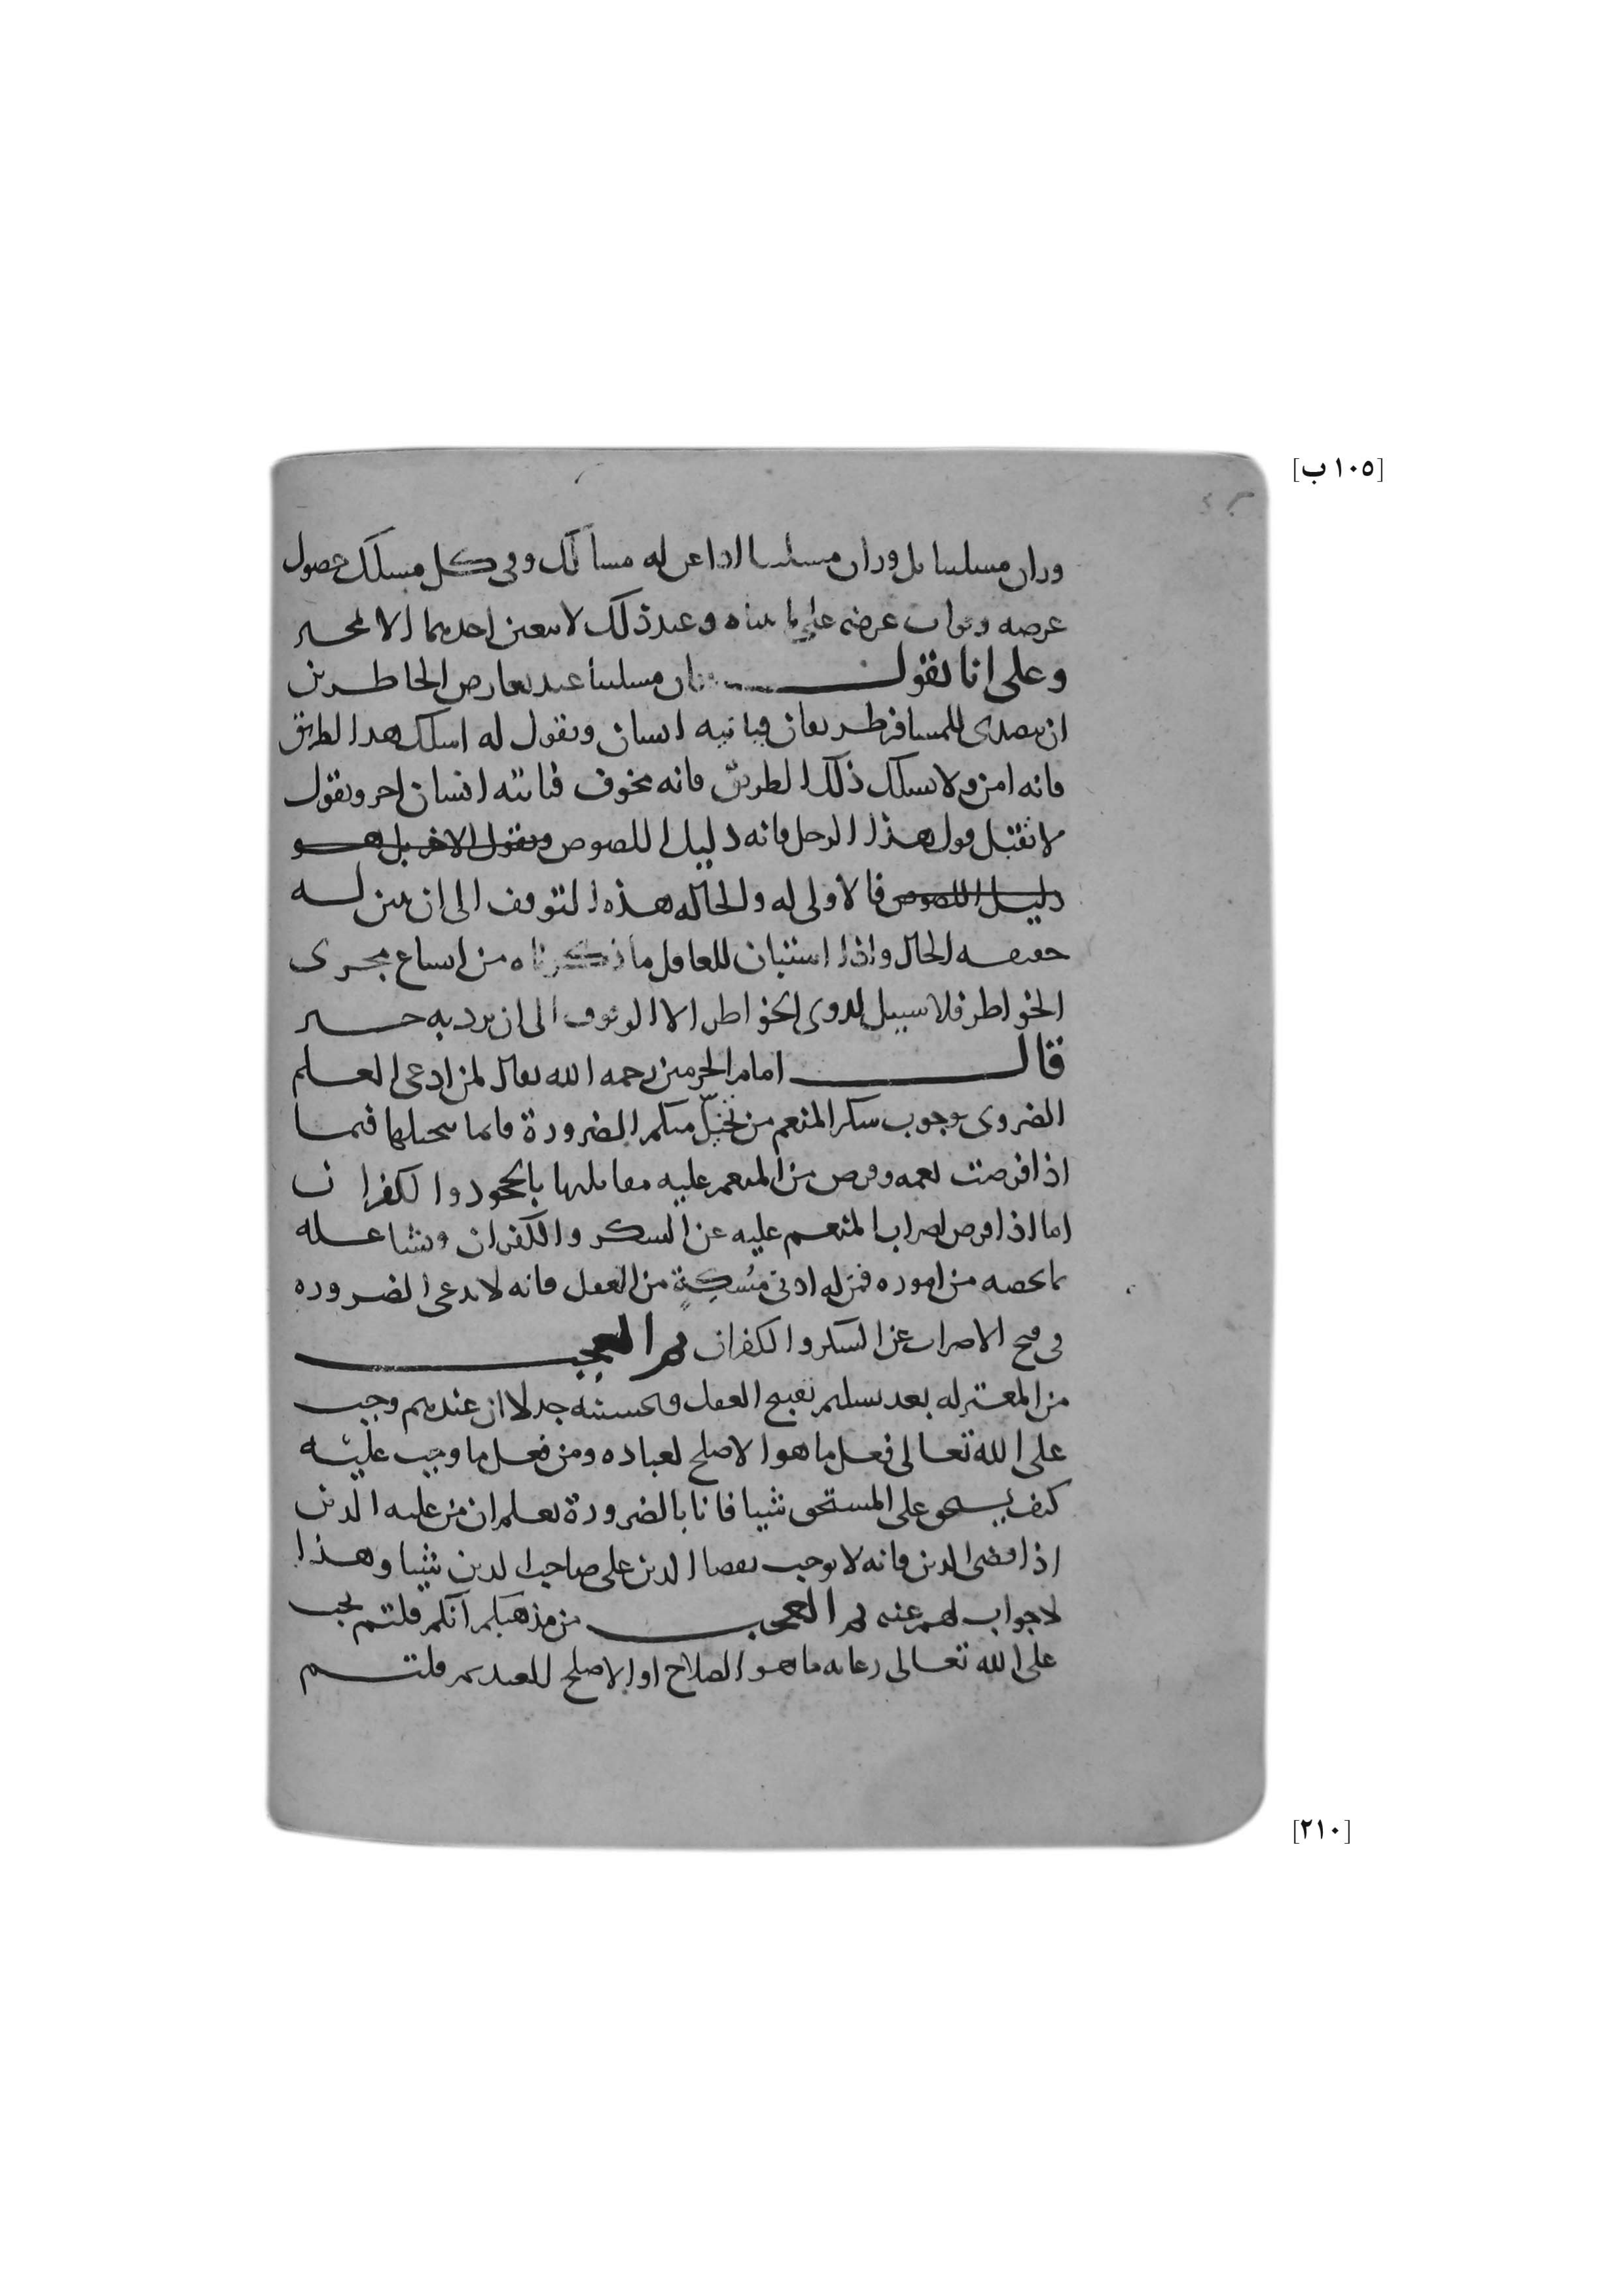 [١٠٥ ب]
وزان مسلسا بل وزان مسلسا اذا عن له مسالك وفى كل مسلك حصول
غرضه وفوات غرضه على ما بيناه وعند ذلك لا يتعين احدهما الا بمخبر
وعلى انا نقول وزان مسلسا عند تعارض الخاطرين
ان يتصدى للمسافر طريقان فياتيه انسان ويقول له اسلك هذا الطريق
فانه امن ولا تسلك ذلك الطريق فانه مخوف فياتيه انسان اخر ويقول
لا تقبل قول هذا الرجل فانه دليل اللصوص ويقول الاخر بل هو
دليل اللصوص فالاولى له والحاله هذه التوقف الى ان يتبين له
حقيقه الحال واذا استبان للعاقل ما ذكرناه من اتساع مجرى
الخواطر فلا سبيل لذوى الخواطر الا الوقوف الى ان يرد به خبر
قال امام الحرمين رحمه الله يقال لمن ادعى العلم
الضرورى بوجوب شكر المنعم من تخيل منكم الضرورة فانما يتخيلها فيما
اذا فرضت نعمه وفرض من المنعم عليه مقابلتها بالجحود والكفران
اما اذا فرض اضراب المنعم عليه عن الشكر والكفران وتشاغله
بما يخصه من اموره فمن له ادنى مُسْكةٍ من العقل فانه لا يدعى الضروره
فى قبح الاضراب عن الشكر والكفران ثم العجب
من المعتزله بعد تسليم تقبيح العقل وتحسينه جدلا ان عندهم وجب
على الله تعالى فعل ما هو الاصلح لعباده ومن فعل ما وجب عليه
كيف يستحق على المستحق شيا فانا بالضرورة نعلم ان من عليه الدين
اذا قضى الدين فانه لا يوجب بقضا الدين على صاحب الدين شيا وهذا
لا جواب لهم عنه ثم العجب من مذهبكم انكم قلتم يجب
على الله تعالى رعايه ما هو الصلاح او الاصلح للعبد ثم قلتم
[٢١٠]